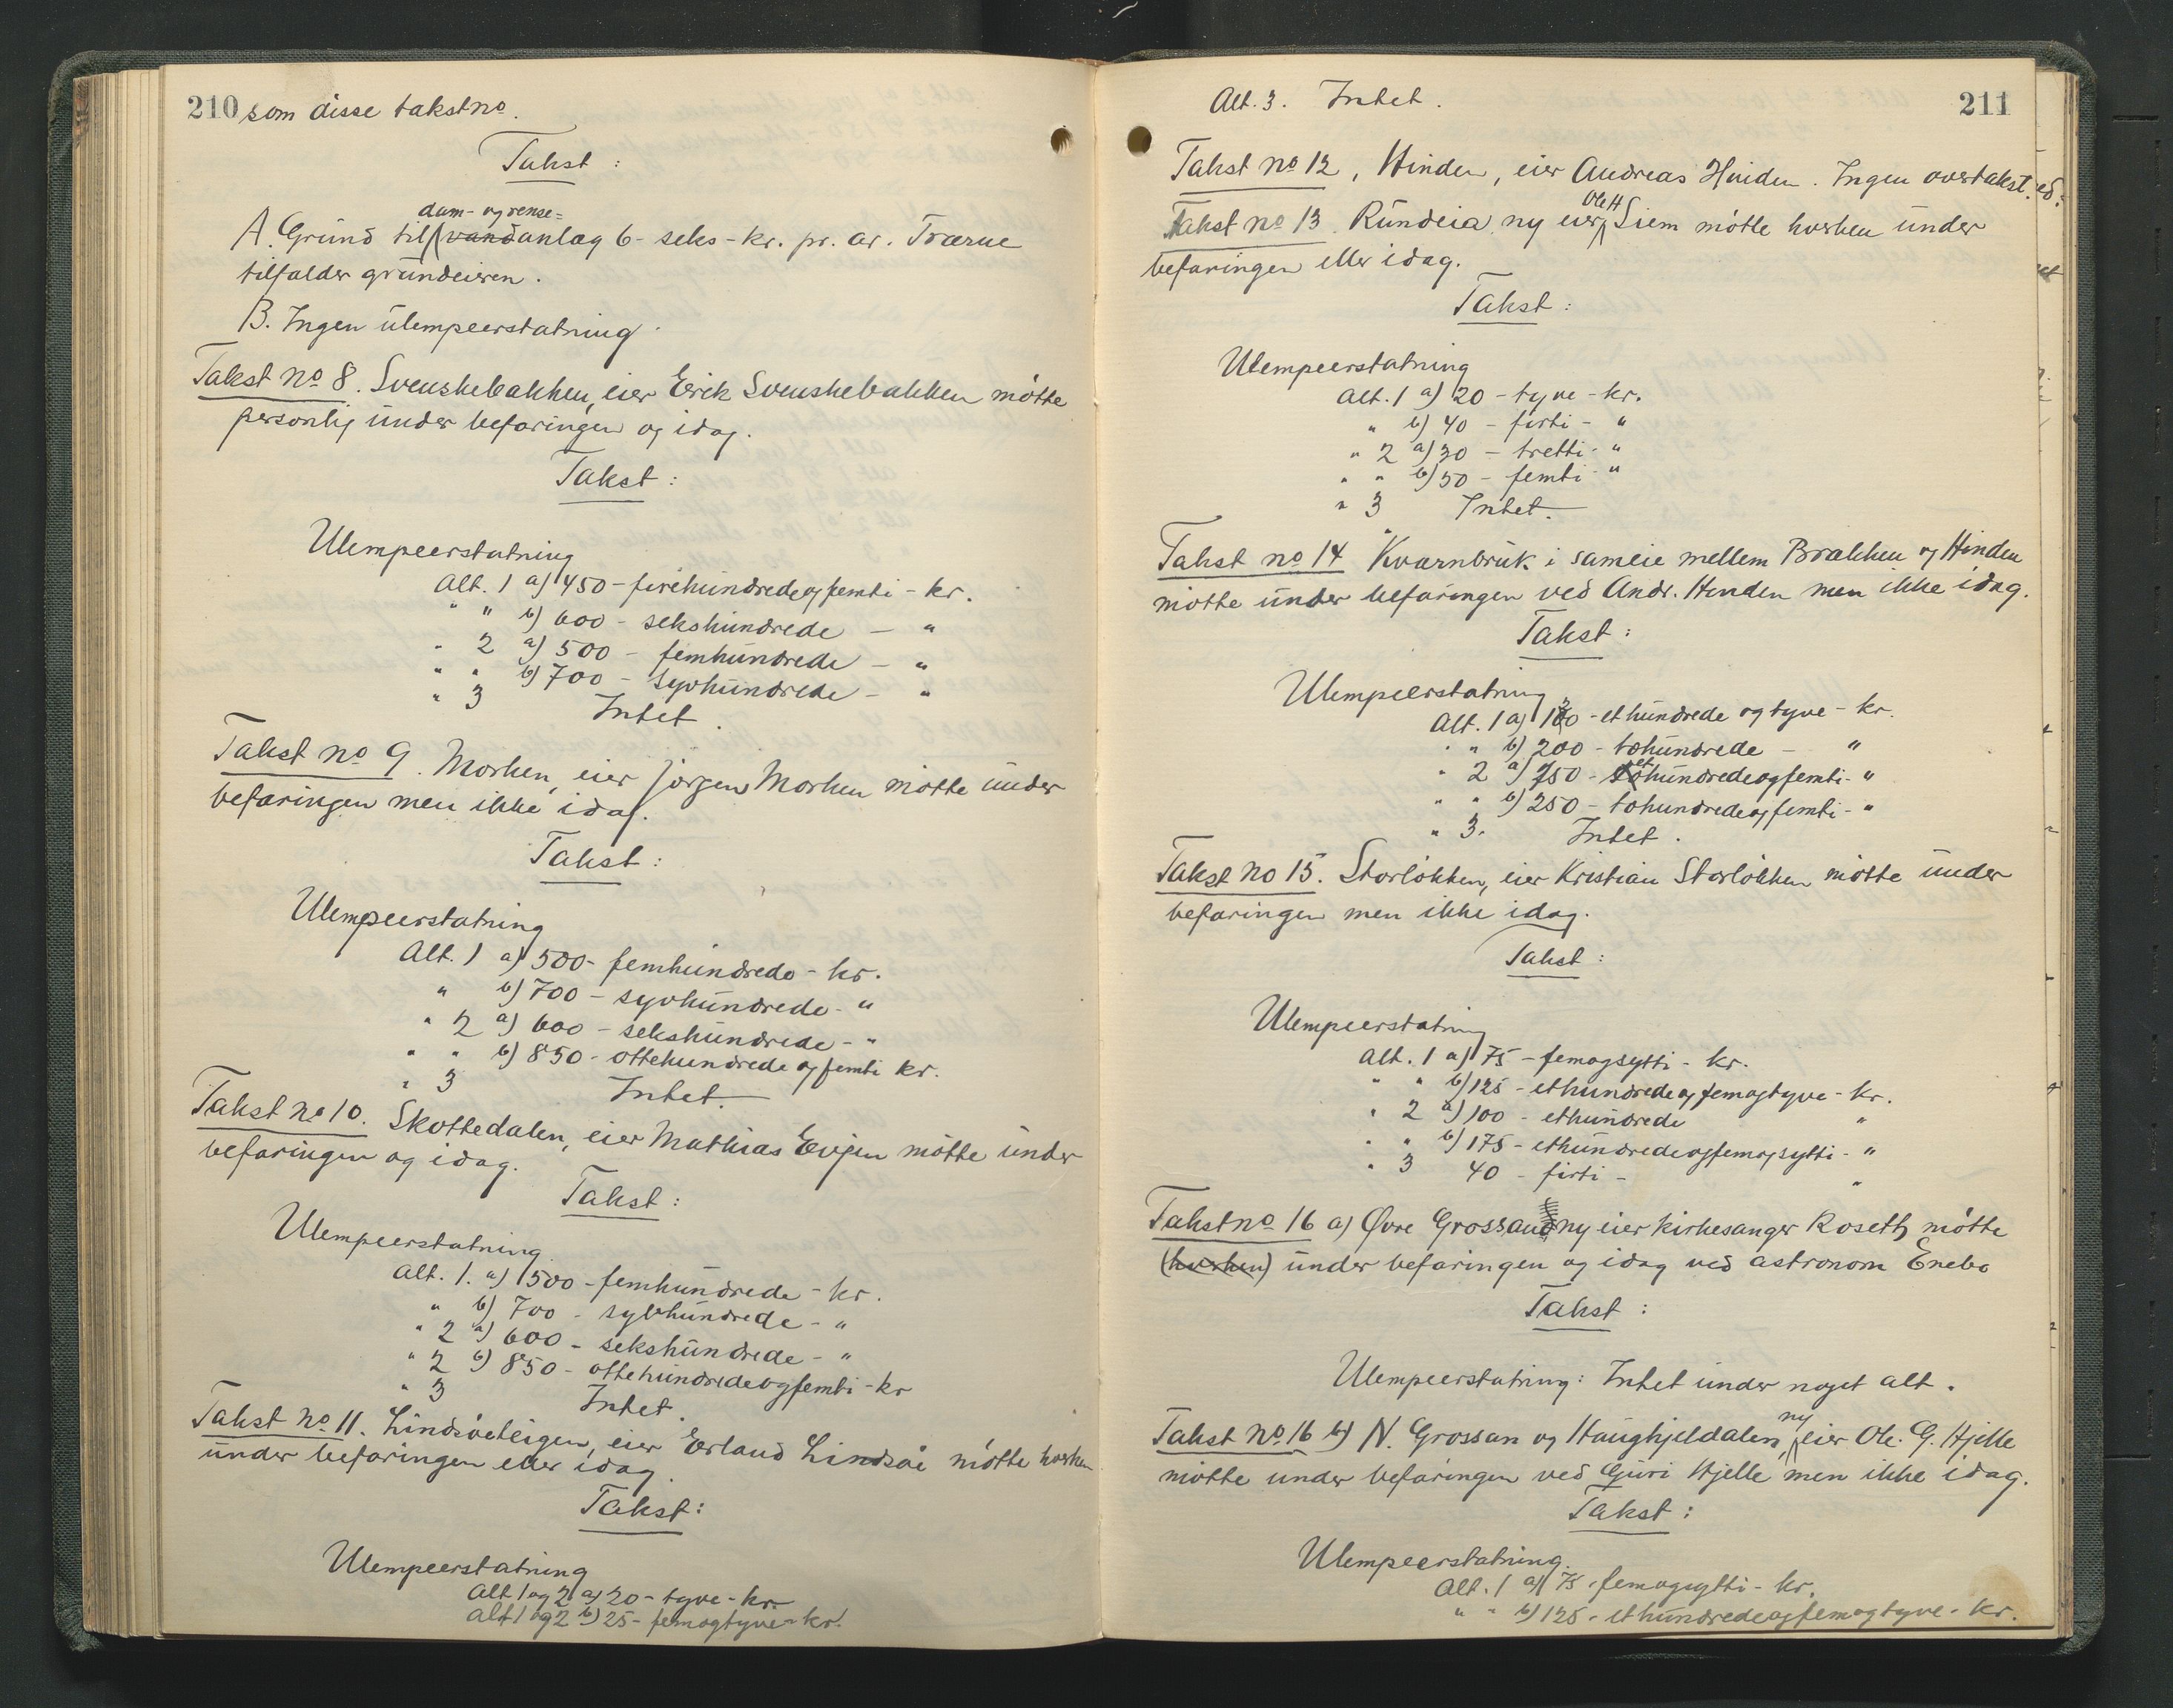 210 som disse takstno.
Takst:
dam- og rense=
A. Grund til vandanlag 6- seks - kr. pr. ar. Trærne
tilfalder grundeieren.
B. Ingen ulempeerstatning.
Takst no 8. Svenskebakken, eier Erik Svenskebakken møtte
personlig under befaringen og idag.
Takst:
Ulempeerstatning
Alt. 1 a) 450 - firehundredeogfemti - kr.
" " b) 600 - sekshundrede - "
" 2 a) 500 - femhundrede - "
" " b) 700 - syvhundrede - "
" 3 Intet.
Takst no 9. Morken, eier Jørgen Morken møtte under
befaringen men ikke idag.
Takst:
Ulempeerstatning
Alt. 1 a) 500 - femhundrede - kr.
" b) 700 - syvhundrede - "
" 2 a) 600 - sekshundrede - "
" " b) 850 - ottehundrede og femti kr.
" 3 Intet.
Takst no 10. Skottedalen, eier Mathias Evjen møtte under
befaringen og idag.
Takst:
Ulempeerstatning
Alt. 1. a) 500 - femhundrede - kr.
" b) 700 - syvhundrede - "
" 2 a) 600 - sekshundrede - "
" 2 b) 850 - ottehundredeogfemti - kr
" 3 Intet.
Takst no 11. Lindsøeteigen, eier Erland Lindsøe møtte hverken
under befaringen eller idag.
Takst:
Ulempeerstatning
Alt 1 og 2 a) 20 - tyve - kr.
Alt 1 og 2 b) 25 - femogtyve - kr.
211
Alt. 3. Intet.
Takst no 12, Hinden, eier Andreas Hinden. Ingen overtakst.
Takst no 13. Rundeia, ny eier Ole H Siem møtte hverken under
befaringen eller idag.
Takst:
Ulempeerstatning
Alt. 1 a) 20 - tyve - kr.
" b) 40 - firti - "
" 2 a) 30 - tretti - "
" " b) 50 - femti - "
" 3 Intet.
Takst no 14 Kvarnbruk i sameie mellem Brækken og Hinden
møtte under befaringen ved Andr. Hinden men ikke idag.
Takst:
Ulempeerstatning
Alt. 1 a) 120 - ethundrede og tyve - kr.
" " b) 200 - tohundrede - "
" 2 a) 150 - ethundredeogfemti - "
" " b) 250 - tohundredeogfemti - "
" 3. Intet.
Takst no 15. Storløkken, eier Kristian Storløkken møtte under
befaringen men ikke idag.
Takst:
Ulempeerstatning
Alt. 1 a) 75 - femogsytti - kr.
" " b) 125 - ethundredeogfemogtyve - kr.
" 2 a) 100 - ethundrede "
" " b) 175 - ethundredeogfemogsytti - "
" 3 40 - firti - "
Takst no 16 a) Øvre Grossan ny eier kirkesanger Roseth møtte
(hverken) under befaringen og idag ved astronom Enebo
Takst:
Ulempeerstatning: Intet under noget alt.
Takst no 16 b) N. Grossan og Haughjeldalen, ny eier Ole G. Hjelle
møtte under befaringen ved Guri Hjelle men ikke idag.
Takst:
Ulempeerstatning.
Alt. 1 a) 75 - femogsytti - kr.
" " b) 125 - ethundredeogfemogtyve - kr.